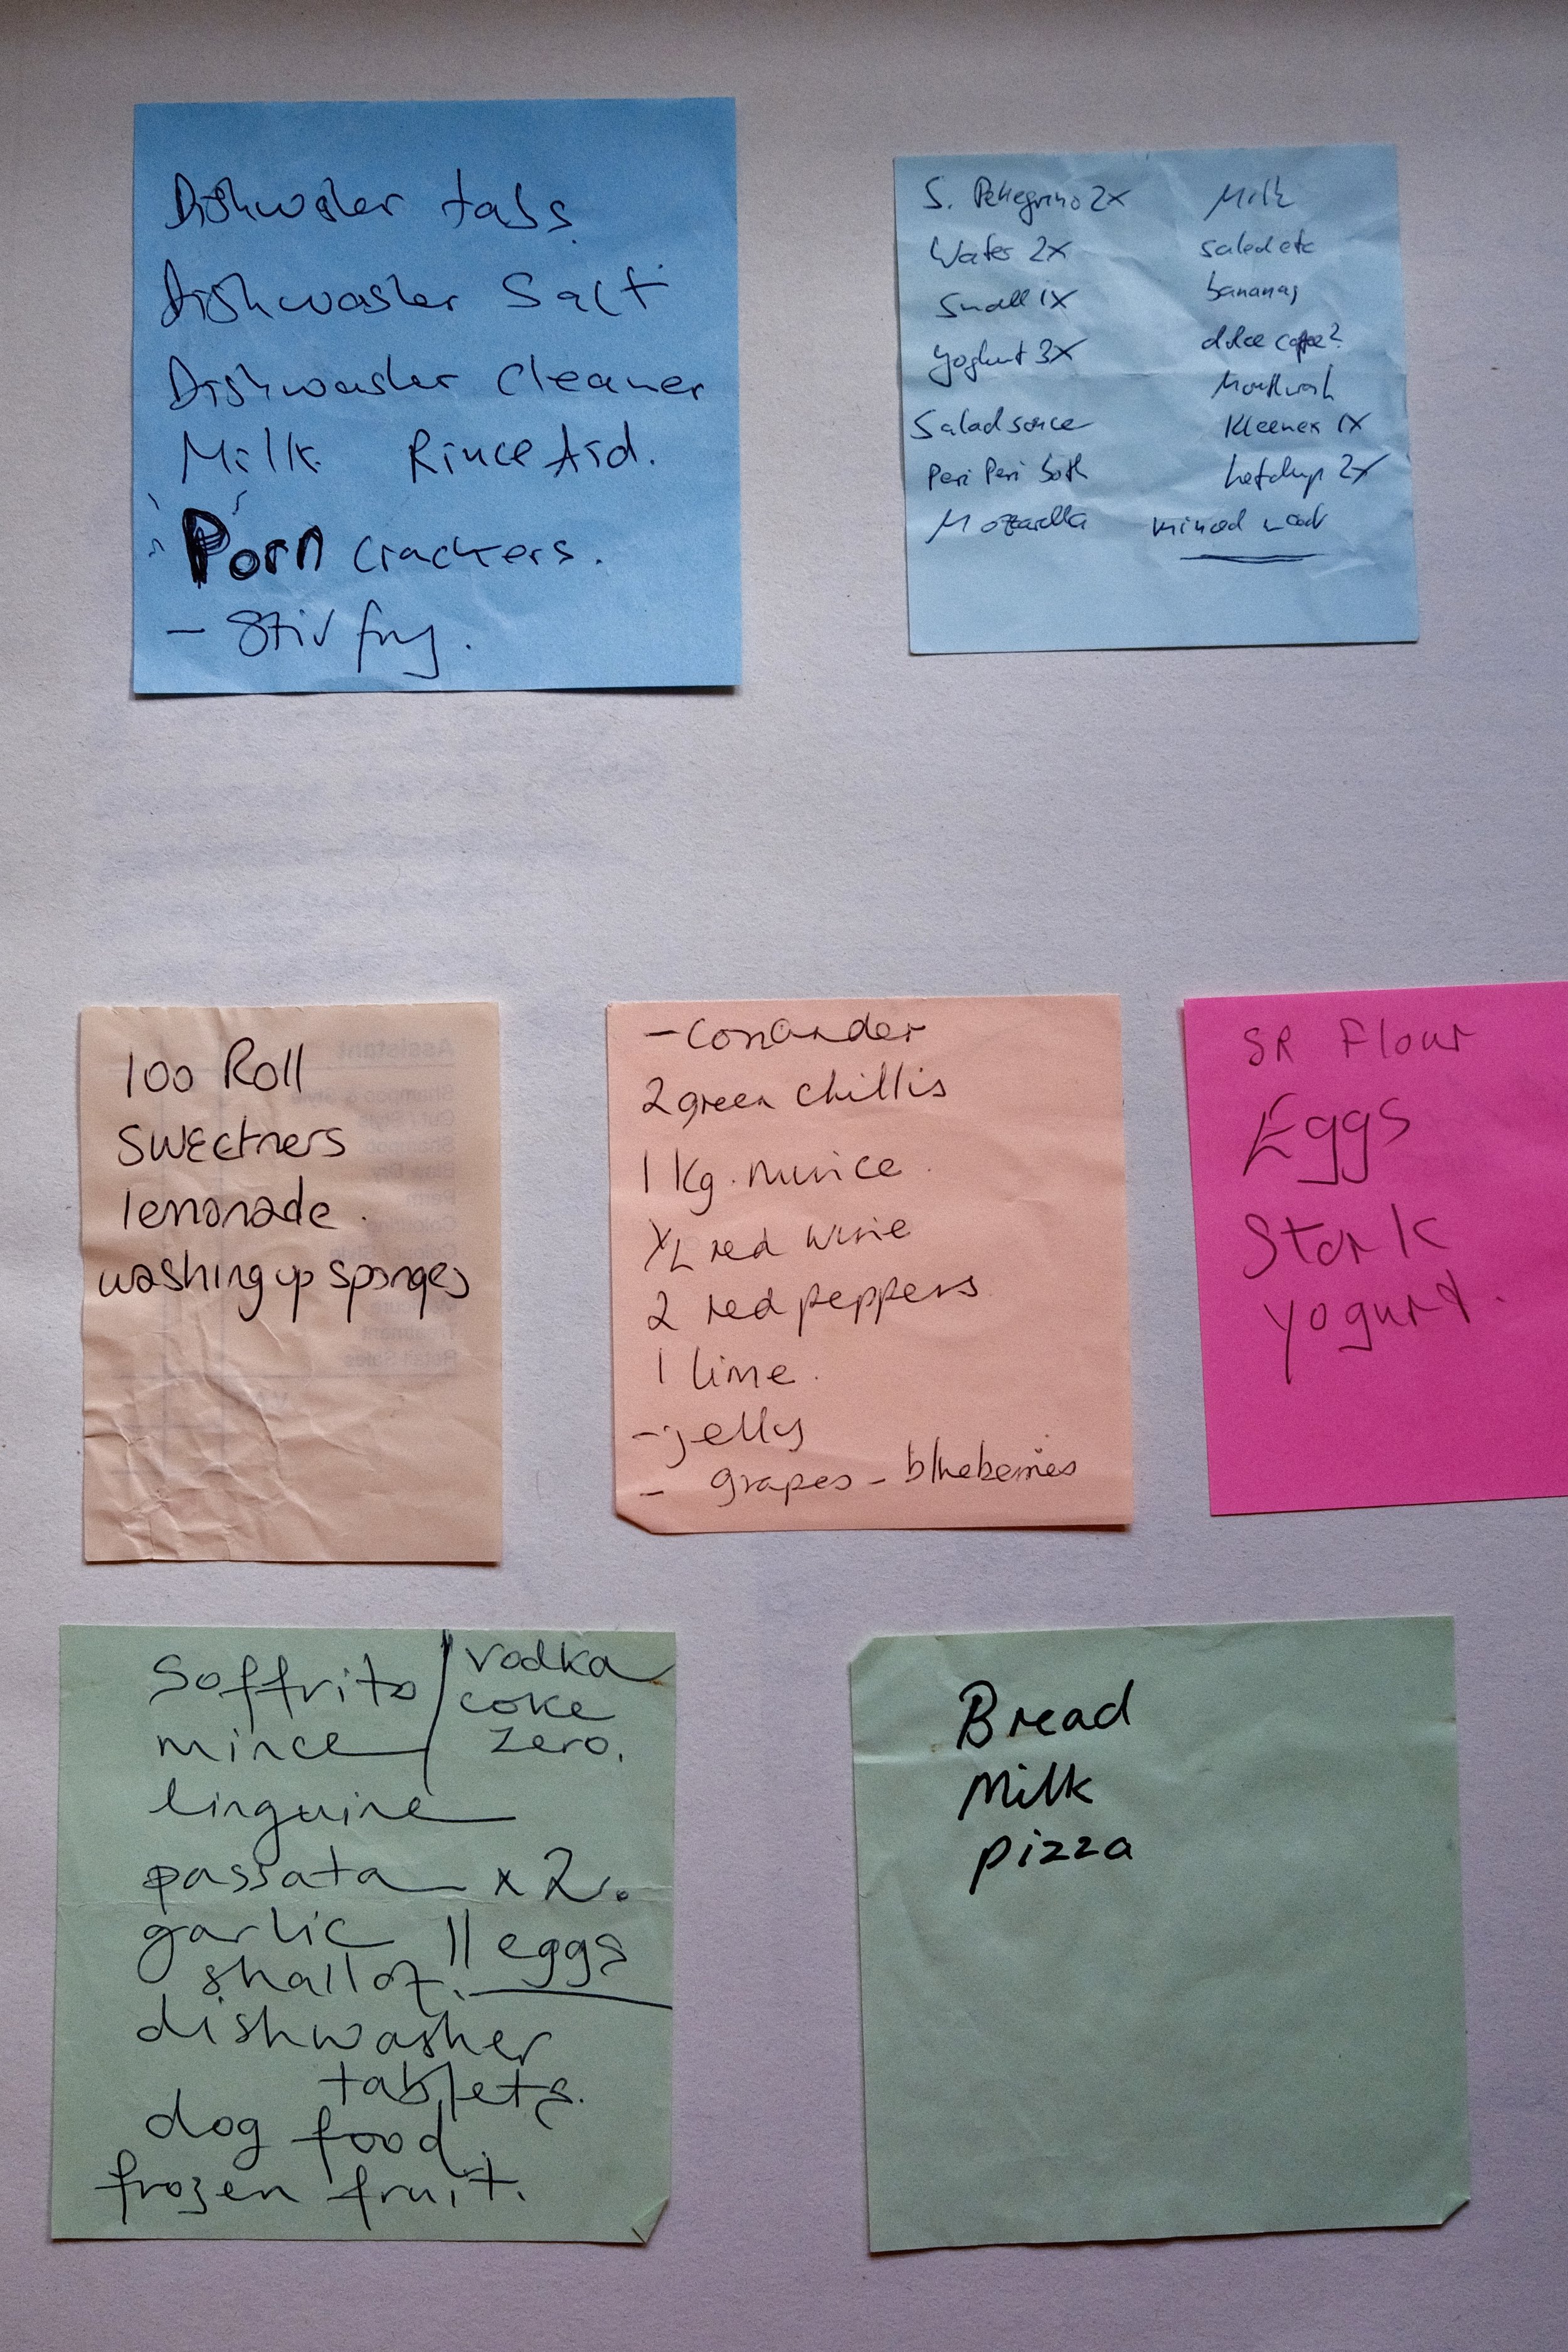 Dishwasher tabs
Dishwasher Salt
Dishwasher Cleaner
Milk Rince Aid.
Porn crackers.
- Stir fry.
S. Pellegrino 2x
Water 2x
Small 1x
Yoghurt 3x
Salad sauce
Peri Peri both
Mozzarella
Milk
salad etc
bananas
dolce coffee?
Mouthwash
Kleenex 1x
ketchup 2x
minced
100 Roll
Sweetners
lemonade.
washing up sponges
- coriander
2 green chillis
1 Kg. mince.
red wine
2 red peppers
1 lime.
- jelly
- grapes - blueberries
SR Flour
Eggs
Stork
Yogurt.
Soffrito
mince
linguine
passata x 2.
garlic || eggs
shallot.
dishwasher
tablets.
dog food.
frozen fruit.
vodka
coke
zero.
Bread
Milk
pizza
Assistant
Shampoo & Style
Shampoo
Blow Dry
Perm
Treatment
Retail Sales